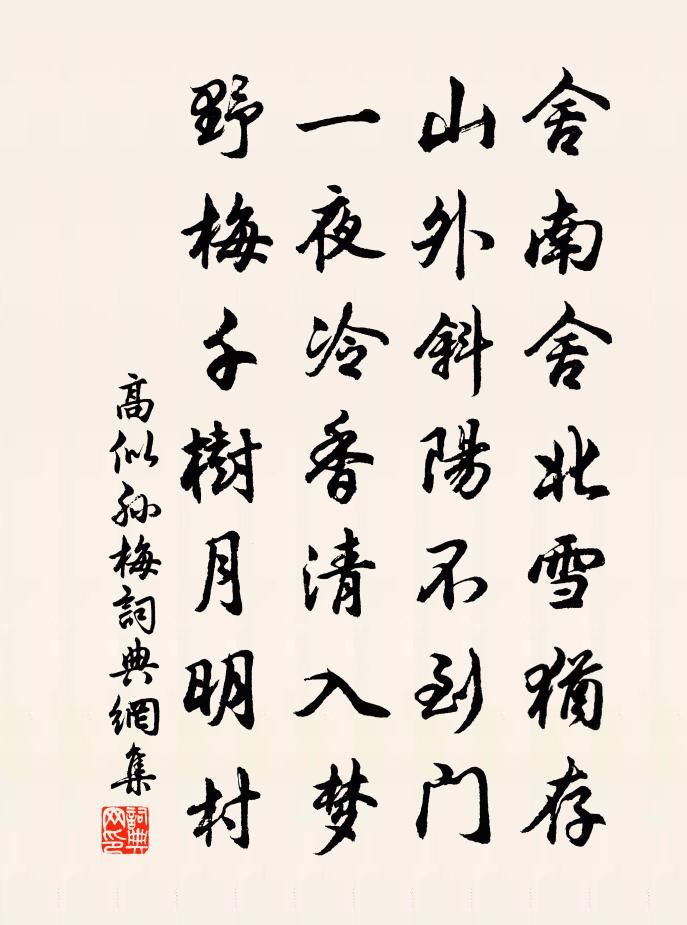 舍南舍北雪猶存
山外斜陽不到門
一夜冷香清入梦
野梅千樹月明村
高似孙梅詞典網集
詞典网印